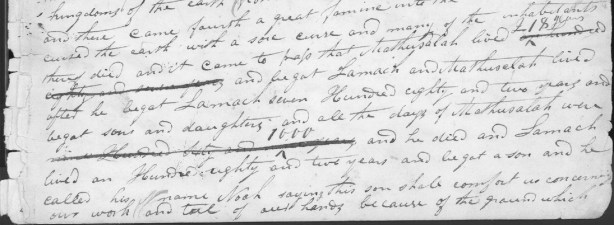 kingdoms of the earth
and there came fourth a great famine into the
cursed the earth with a sore curse and many of the inhabitants
there died and it came to pass that Mathusalah lived hundred
eighty and seven years and begat Lamach and Mathuselah lived
after he begat Lamach seven Hundred eighty and two years and
begat sons and daughters and all the days of Mathusalah were
1000
Hundred sixty and years and he died and Lamach
lived an Hundred eighty and two years and begat a son and he
called his name Noah saying this son shall comfort us concerning
our work and toil of our hands because of the ground which